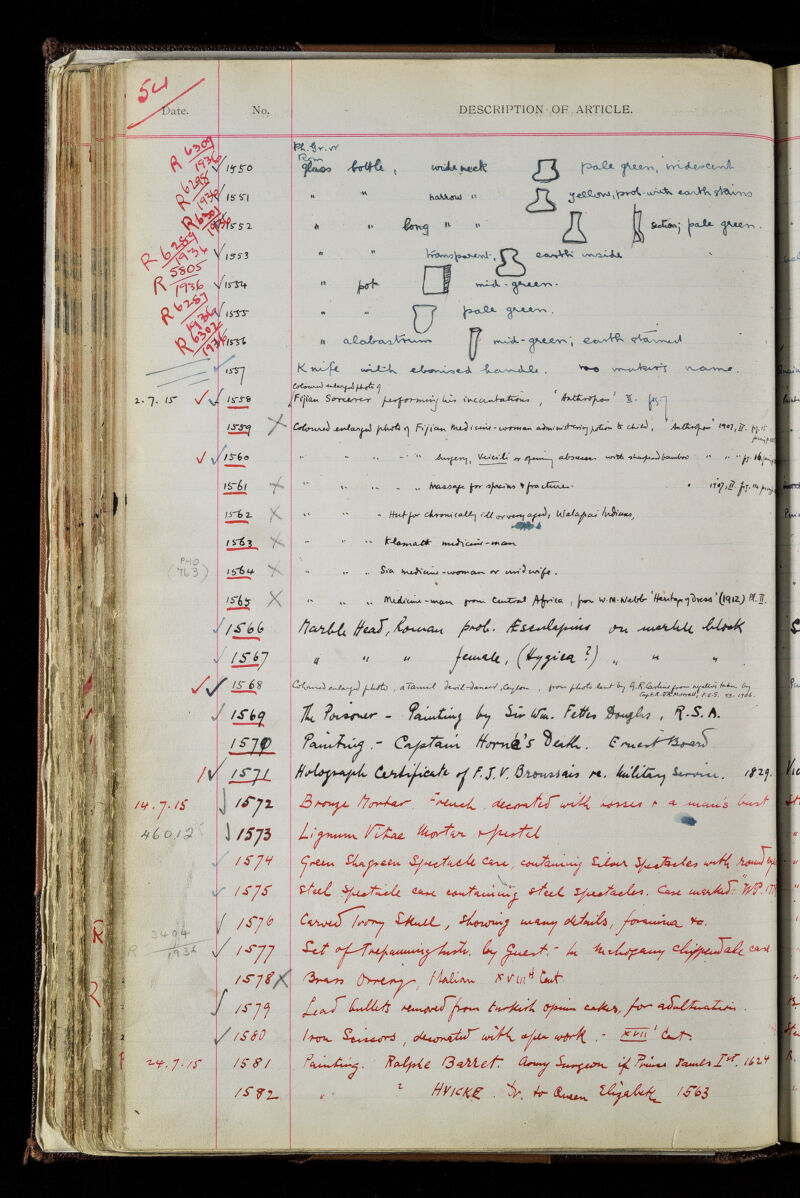 54
Date. No. DESCRIPTION OF ARTICLE.
Ph. Gr. or
Rom
R 6309 / 1936 1550 glass bottle, wide neck pale green, iridescent
R 6298 / 1936 1551 " " narrow " yellow, prob. with earth stains
R 6301 / 1936 1552 " " long " " section; pale green.
R 6259 / 1936 1553 " " transparent, earth inside
R 5805 / 1936 1554 " pot mid-green.
R 6287 / 1936 1555 " " pale green.
R 6302 / 1936 1556 " alabastrum mid-green; earth stained
1557 Knife with ebonised handle. no maker's name.
Coloured enlarged photo of
2.7.15 1558 Fijian Sorcerer performing his incantations, 'Anthropos' II.
1559 X Coloured enlarged photo of Fijian medicine-woman administering potion to child, 'Anthropos' 1907, II.
1560 " " " - " surgery, or opening abscesses with sharpened bamboo " "
1561 X " " " - " massage for sprains & fracture. " 1907, II.
1562 X " " - Hut for chronically ill or very aged, Walapai Indians,
1563 X " " " Klamath medicine-man
PHO
(763) 1564 X " " " Sia medicine-woman or midwife.
1565 X " " " Medicine-man from Central Africa, from W.M. Webb 'Heritage of Dress' (1912) Pl. II.
1566 Marble Head, Roman prob. Æsculapius on marble block
1567 " " " female, (Hygiea ?) " " "
1568 Coloured enlarged photo, a Tamil devil-dancer, Ceylon, from photo lent by from negative taken by
1569 The Poisoner - Painting by Sir Wm. Fettes Douglas, R.S.A.
1570 Painting.- Captain Horne's Death. Ernest Board
1571 Holograph Certificate of F.J.V. Broussais re. Military Service. 1829.
14.7.15 1572 Bronze Mortar French decorated with bosses & a man's bust
46012 1573 Lignum Vitae Mortar & pestel
1574 Green Shagreen Spectacle Case, containing Silver Spectacles with round
1575 Steel Spectacle case containing steel spectacles. Case marked: "W.P.
1576 Carved Ivory Skull, showing many details, foramina &c.
3404
R 1936 1577 Set of Trepanning by Guest.- In Mahogany Chippendale case
1578 X Brass Orrery, Italian XVIIIth Cent.
1579 Lead bullets removed from turkish opium cakes, for adulteration.
1580 Iron Scissors, decorated with open work.- XVII' Cent.
24.7.15 1581 Painting. Ralphe Barret. Army Surgeon if Prince James Ist. 1624
1582 " ? HVICKE. Dr. to Queen Elizabeth 1563